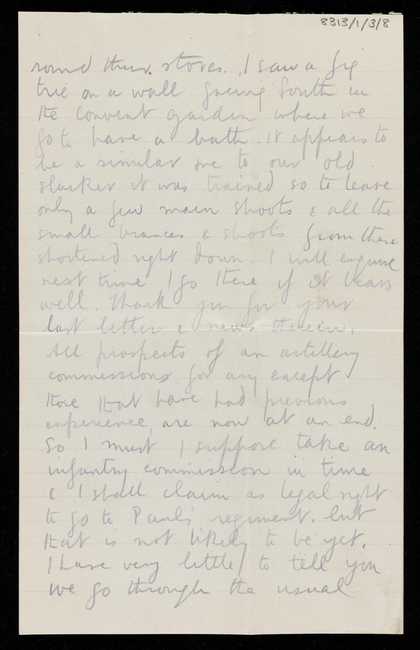 8313/1/3/8
round their stoves. I saw a fig
tree on a wall facing South in
the convent garden where we
go to have a bath. it appears to
be a similar one to our old
slacker it was trained so to leave
only a few main shoots & all the
small brances & shoots from these
shortened right down. I will enquire
next time I go there if it bears
well. Thank you for your
last letter & news therein.
All prospects of an artillery
commissions for any except
those that have had previous
experience, are now at an end.
So I must I suppose take an
infantry commission in time
& I shall claim as legal right
to go to Paul's regiment. but
that is not likely to be yet.
I have very little to tell you
we go through the usual